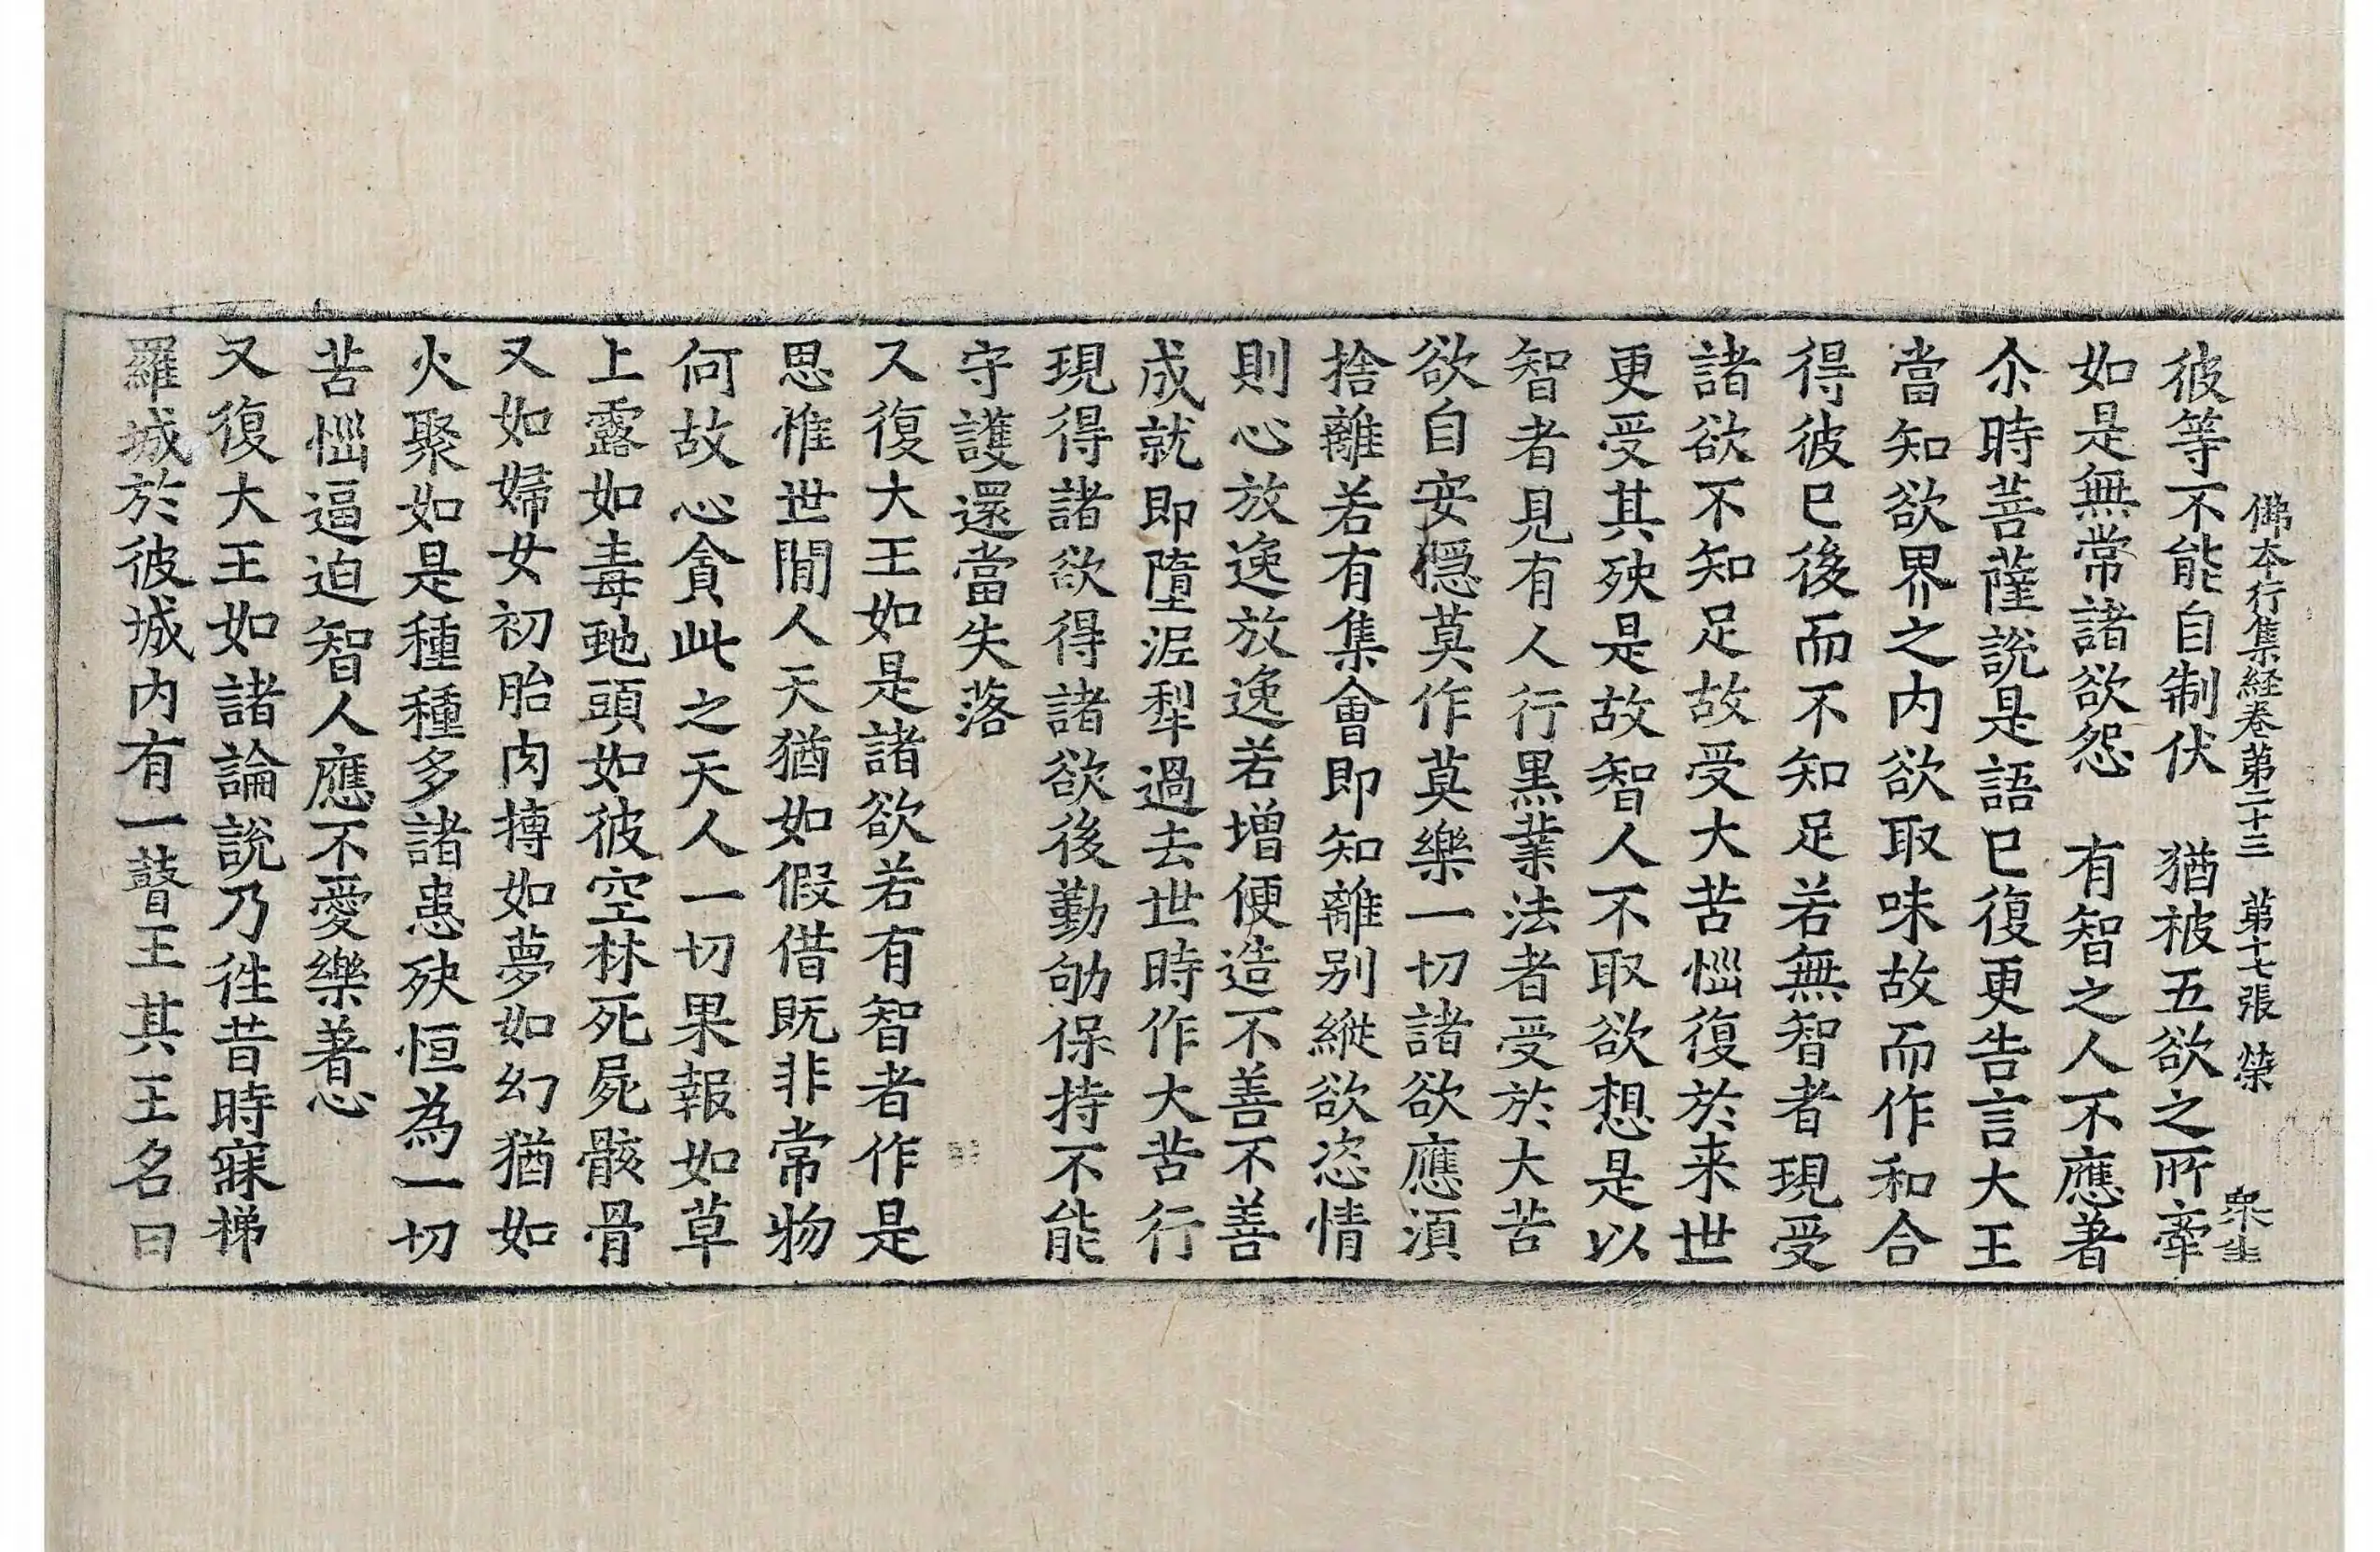 佛本行集経卷第二十三 第十七張 榮 衆生
彼等不能自制伏 猶被五欲之所牽
如是無常諸欲怨 有智之人不應著
尒時菩薩說是語已復更告言大王
當知欲界之内欲取味故而作和合
得彼已後而不知足若無智者現受
諸欲不知足故受大苦惱復於来世
更受其殃是故智人不取欲想是以
智者見有人行黒業法者受於大苦
欲自安隱莫作莫樂一切諸欲應湏
捨離若有集會即知離别縱欲恣情
則心放逸放逸若増便造不善不善
成就即墮泥犁過去世時作大苦行
現得諸欲得諸欲後勤劬保持不能
守護還當失落
又復大王如是諸欲若有智者作是
思惟世間人天猶如假借既非常物
何故心貪此之天人一切果報如草
上露如毒虵頭如彼空林死屍骸骨
又如婦女初胎肉摶如夢如幻猶如
火聚如是種種多諸患殃恒為一切
苦惱逼迫智人應不愛樂著心
又復大王如諸論說乃徃昔時寐梯
羅城於彼城内有一瞽王其王名曰